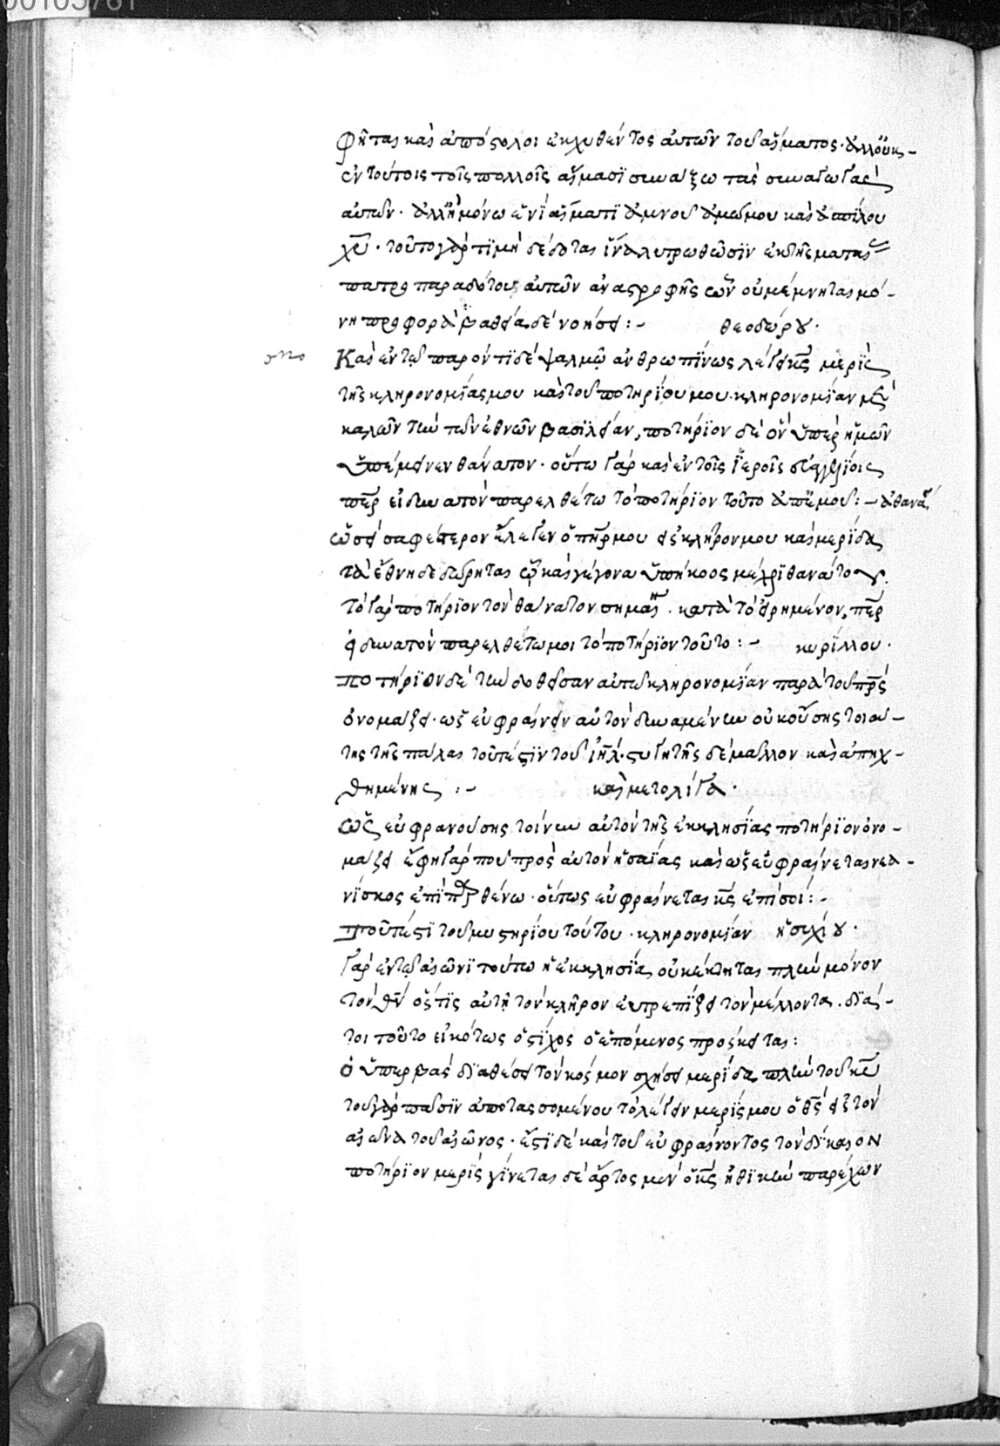 φῆται καὶ ἀπόστολοι ἐκχυθέντος αὐτῶν τοῦ αἵματος· ἀλλ' οὐκ
ἐν τούτοις τοῖς πολλοῖς αἵμασι συνάξω τὰς συναγωγὰς
αὐτῶν· ἀλλ' ἢ μόνω ἑνὶ αἵματι ἀμνοῦ ἀμώμου καὶ ἀσπίλου
χυ· τοῦτο γὰρ τιμὴ δέδοται ἵνα λυτρωθῶσιν ἐκ τῆς ματαίας
πατροπαραδότου αὐτῶν ἀναστροφῆς ὧν οὐ μέμνηται μό-
νη προφορᾶ βαθεῖα δὲ νοήσει :- θεοδώρου·
Καὶ ἐν τῶ παρόντι δὲ ψαλμῶ ἀνθρωπίνως λέγει κς μερὶς
τῆς κληρονομίας μου καὶ τοῦ ποτηρίου μου· κληρονομίαν μὲν
καλῶν τὴν τῶν ἐθνῶν βασιλείαν, ποτήριον δὲ ὃν ὑπὲρ ἡμῶν
ὑπέμεινεν θάνατον· οὕτω γὰρ καὶ ἐν τοῖς ἱεροῖς εὐαγγελίοις
περ εἰ δυνατὸν παρελθέτω τὸ ποτήριον τοῦτο ἀπ' ἐμοῦ :- ἀθανα
ὡσεὶ σαφέστερον ἔλεγεν ὁ πηρ μου εἰς κλῆρον μου καὶ μερίδα
τὰ ἔθνη δεδώρηται ὧ καὶ γέγονα ὑπήκοος μέχρι θανάτου
τὸ γὰρ ποτήριον τὸν θάνατον σημαίνει· κατὰ τὸ εἰρημένον, περ
εἰ δυνατὸν παρελθέτω μοι τὸ ποτήριον τοῦτο :- κυρίλλου·
ποτήριον δὲ τὴν δοθεῖσαν αὐτῶ κληρονομίαν παρὰ τοῦ πρς
ὀνομάζει· ὡς εὐφραίνειν αὐτὸν δυναμένην οὐκ οὔσης τοιαύ-
της τῆς πάλαι τουτέστιν τοῦ ιηλ· στυγητῆς δὲ μᾶλλον καὶ ἀπηχ-
θημένης :- καὶ μετ' ὀλίγα·
ὡς εὐφρανούσης τοίνυν αὐτὸν τῆς ἐκκλησίας ποτήριον ὀνο-
μάζει ἔφη γάρ που πρὸς αὐτὸν ἡσαΐας καὶ ὡς εὐφραίνεται νεα-
νίσκος ἐπὶ παρθένω· οὕτως εὐφραίνεται κς ἐπὶ σοί :-
τουτέστι τοῦ μυστηρίου τούτου· κληρονομίαν ἡσυχίου·
γὰρ ἐν τῶ αἰῶνι τούτω ἡ ἐκκλησία οὐ κέκτηται πλὴν μόνον
τὸν θν ὅστις αὐτῆ τὸν κλῆρον εὐτρεπίζει τὸν μέλλοντα. διά-
τοι τοῦτο εἰκότως ὁ στίχος ὁ ἑπόμενος πρόσκειται :
ὁ ὑπερβὰς διαθέσει τὸν κόσμον σχήσει μερίδα πλὴν τοῦ κυ
τοῦ γὰρ πᾶσιν ἀποτασσομένου τὸ λέγειν μερίς μου ὁ θς εἰς τὸν
αἰῶνα τοῦ αἰῶνος· ἔστι δὲ καὶ τοῦ εὐφραίνοντος τὸν δίκαιον
ποτήριον μερὶς γίνεται δὲ ἄρτος μὲν ὁ κς ἠθικὴν παρέχων